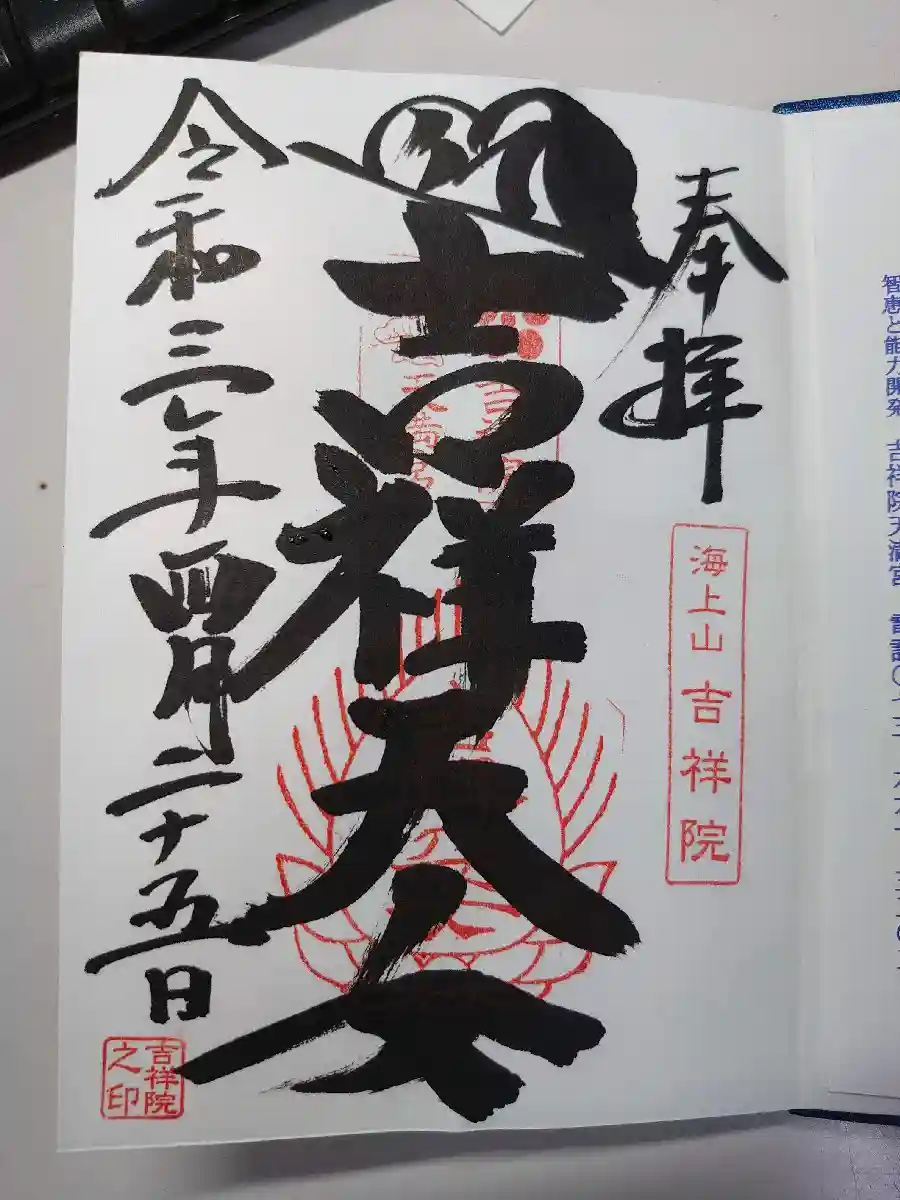 智恵と能力開発 吉祥院天満宮
奉拝
海上山 吉祥院
吉祥天女
令和三年四月二十五日
吉祥院
之印